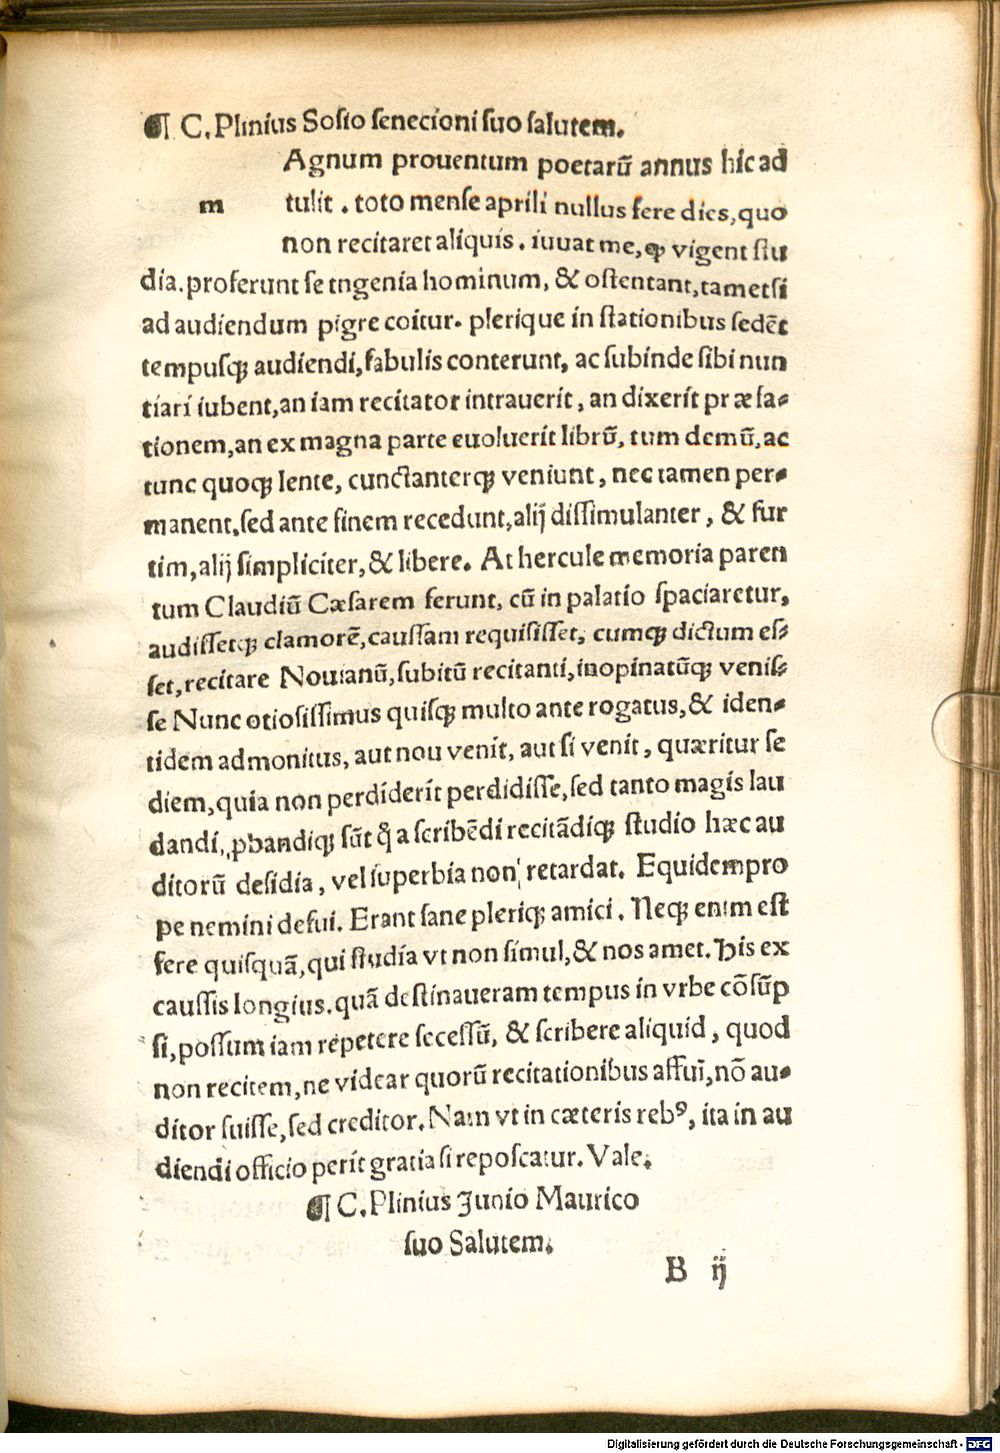 ¶ C. Plinius Sosio senecioni suo salutem.
Agnum prouentum poetarū annus hic ad
m tulit . toto mense aprili nullus fere dies, quo
non recitaret aliquis . iuuat me, ꝙ vigent stu
dia. proferunt se ingenia hominum, & ostentant, tametsi
ad audiendum pigre coitur. plerique in stationibus sedēt
tempusq; audiendi, fabulis conterunt, ac subinde sibi nun
tiari iubent, an iam recitator intrauerit, an dixerit præfa-
tionem, an ex magna parte euoluerit librū, tum demū, ac
tunc quoq; lente, cunctanterq; veniunt, nec tamen per-
manent. sed ante finem recedunt, alij dissimulanter, & fur
tim, alij simpliciter, & libere. At hercule memoria paren
tum Claudiū Cæsarem ferunt, cū in palatio spaciaretur,
audissetq; clamorē, caussam requisisset, cumq; dictum es-
set, recitare Nouianū, subitū recitanti, inopinatūq; venis-
se Nunc otiosissimus quisq; multo ante rogatus, & iden-
tidem admonitus, aut nou venit, aut si venit, quæritur se
diem, quia non perdiderit perdidisse, sed tanto magis lau
dandi, ꝓbandiq; sūt q̄ a scribēdi recitādiq; studio hæc au
ditorū desidia, vel superbia non retardat. Equidem pro
pe nemini defui. Erant sane pleriq; amici. Neq; enim est
fere quisquā, qui studia vt non simul, & nos amet. His ex
caussis longius. quā destinaueram tempus in vrbe cōsūp
si, possum iam repetere secessū, & scribere aliquid, quod
non recitem, ne videar quorū recitationibus affuī, nō au-
ditor fuisse, sed creditor. Nam vt in cæteris rebꝰ, ita in au
diendi officio perit gratia si reposcatur. Vale.
¶ C. Plinius Junio Maurico
suo Salutem.
B ij
Digitalisierung gefördert durch die Deutsche Forschungsgemeinschaft - DFG